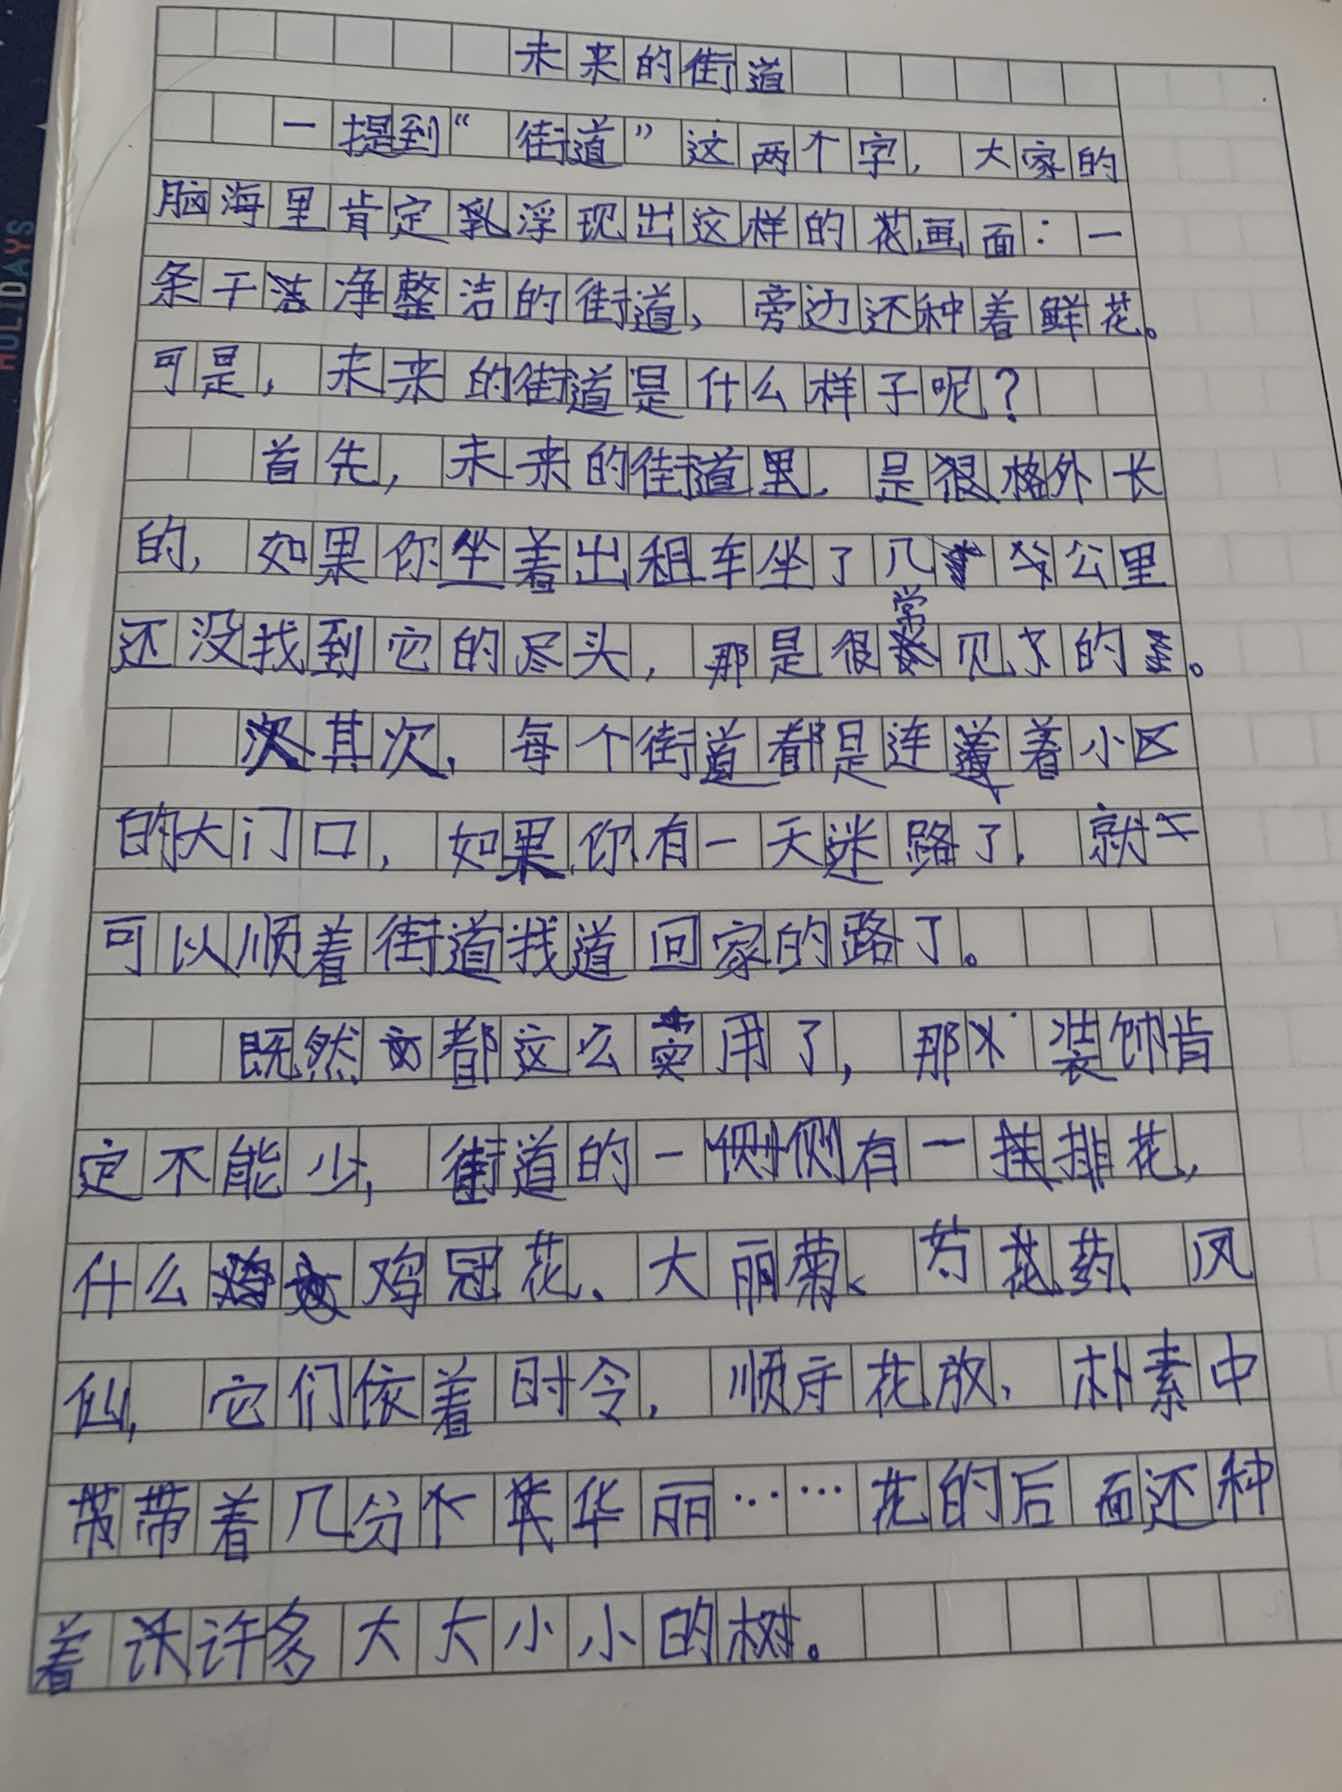 未来的街道
一提到“街道”这两个字，大家的
脑海里肯定浮现出这样的画面：一
条干净整洁的街道，旁边还种着鲜花。
可是，未来的街道是什么样子呢？
首先，未来的街道里，是格外长
的，如果你坐着出租车坐了几公里
还没找到它的尽头，那是很常见的。
其次，每个街道都是连着小区
的大门口，如果你有一天迷路了，就
可以顺着街道找道回家的路了。
既然都这么实用了，那装饰肯
定不能少，街道的一侧有一排花，
什么鸡冠花、大丽菊、芍药、凤
仙，它们依着时令，顺序花放，朴素中
带着几分华丽……花的后面还种
着许多大大小小的树。
HOLIDAYS